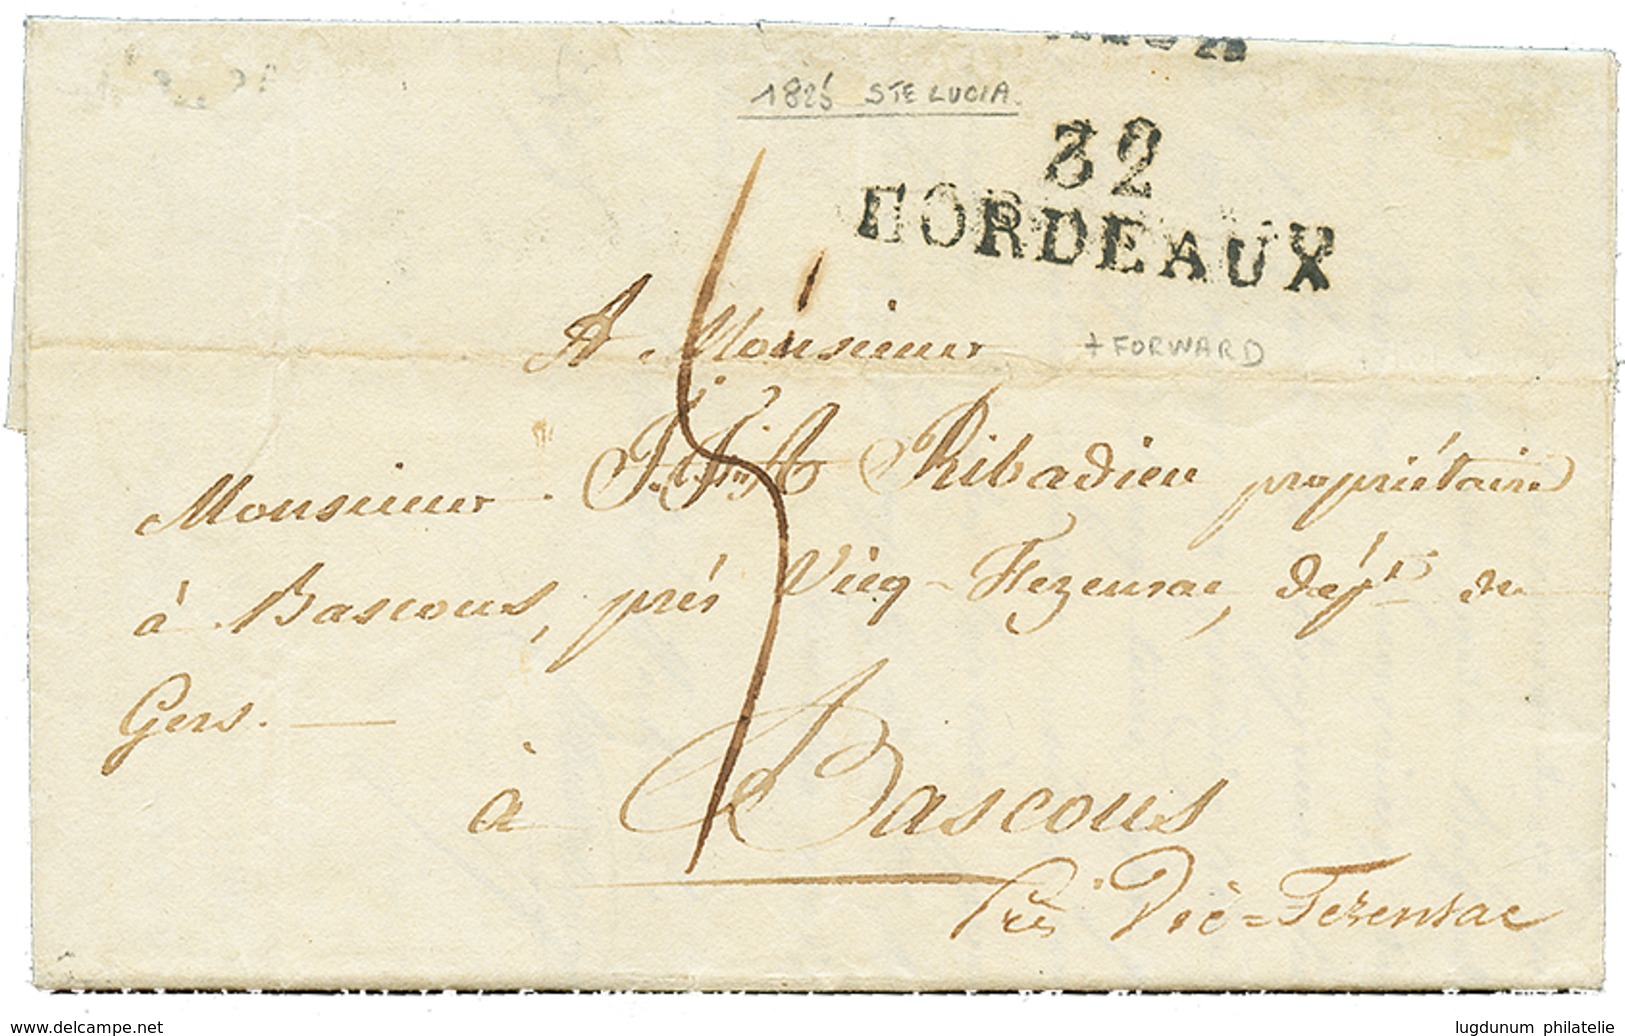 1825 STE LUCIA.
32
BORDEAUX
A Monsieur
+ FORWARD
Monsieur Ribadieu propriétaire
à Bascous, près Vicq-Fezensac, dépt. du
Gers.
à Bascous
Près Vic=Fezensac
www.delcampe.net
lugdunum philatelie